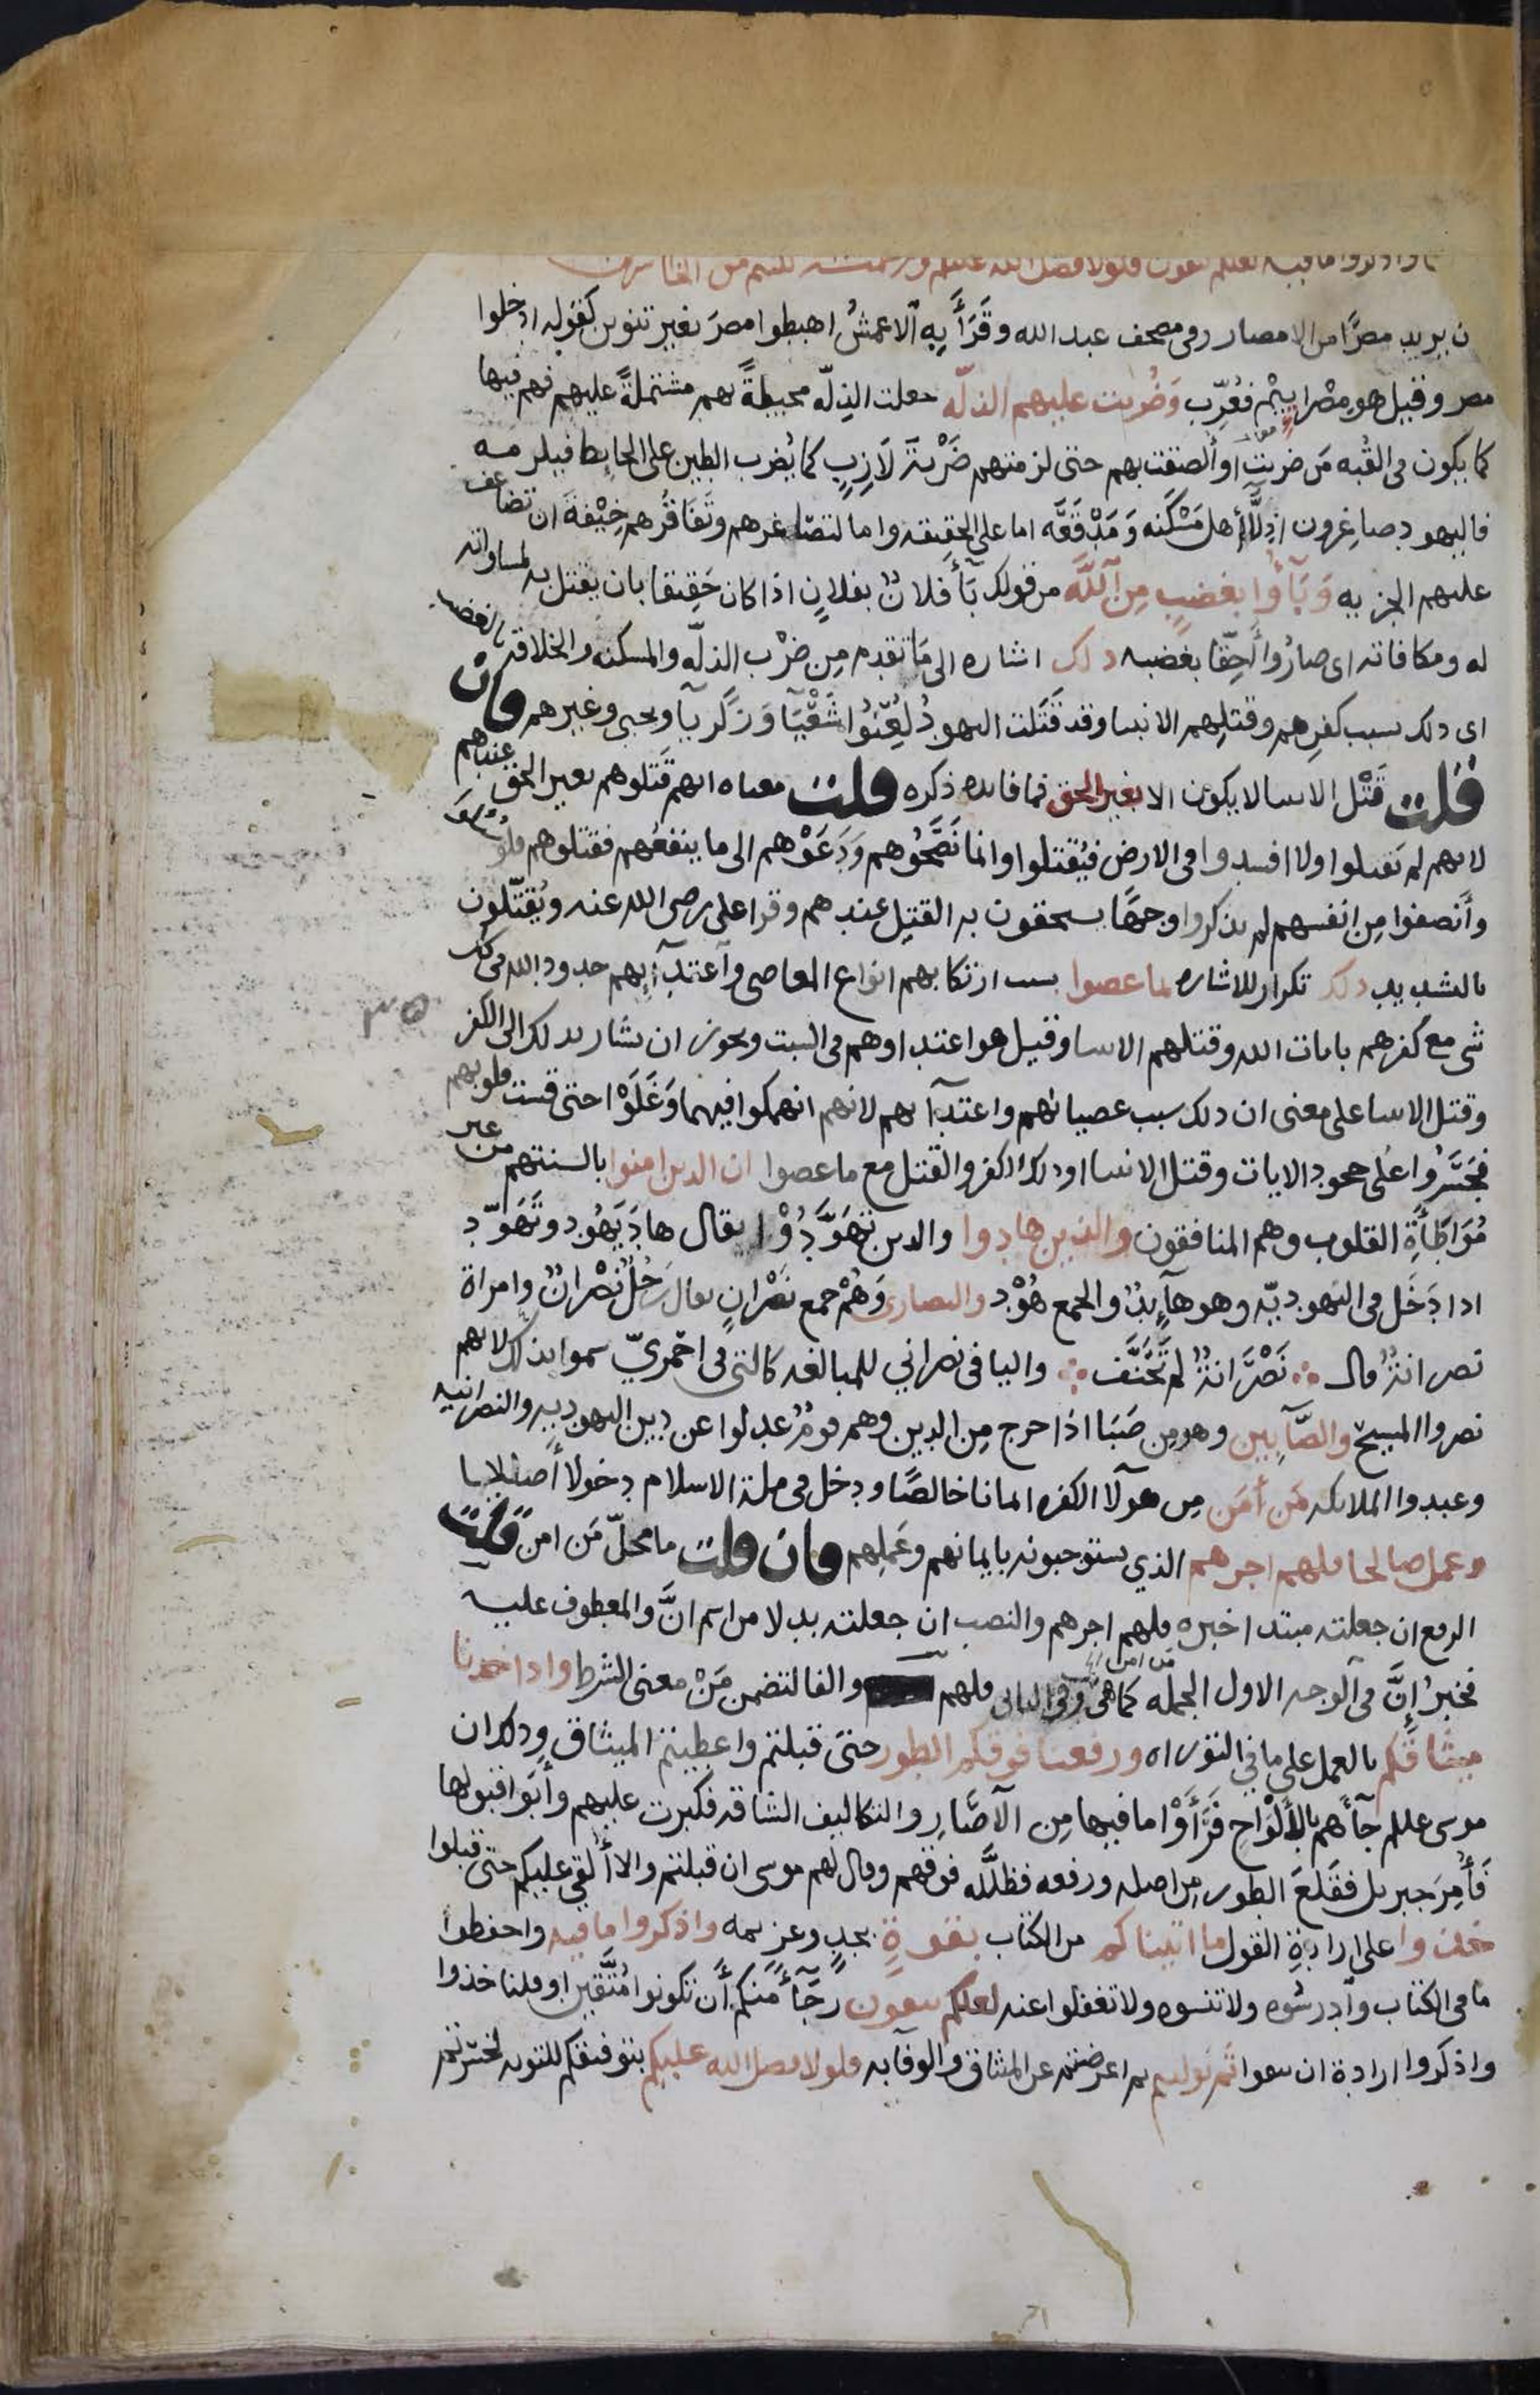 ما واذكروا ما فيه لعلكم تتقون فلولا فضل الله عليكم ورحمته لكنتم من الخاسرين
ن يريد مصرًا من الامصار وفى مصحف عبد الله وقَرَأ بِهِ الاعمشُ اهبطوا مصرَ بغير تنوين كقوله ادخلوا
مصر وقيل هو مِصْرايِيْم فعُرِّب وَضُربت عليهم الذلّه جعلت الذِلّه محيطةً بهم مشتملةً عليهم فهم فيها
كما يكون فى القُبه مَن ضربت او ألصقت بهم حتى لزمتهم ضَرْبةَ لَازِبٍ كما يُضرب الطين على الحايط فيلزمه
فاليهود صاغِرون اذِلَّآ أهل مَسْكَنه وَمَدْقَعَه اما على الحقيقه واما لتصَاغرهم وتَفَاقُرهم خِيْفةَ ان تضاعف
عليهم الجزيه وَبَآؤُا بغضبٍ مِن اللَّه من قولك بَآ فلانٌ بفلانٍ اذا كان حَقِيقا بان يقتل به لمساواته
له ومكافاته اى صارُوا أحِقّا بغضبه ذلك اشاره الى مَا تقدم مِن ضرْب الذلّه والمسكنه والخلاقه بالغضب
اى ذلك بسبب كفرِهم وقتلِهم الانبيا وقد قَتَلت اليهودُ لُعِنُوا شَعْيَآ وَزَكَريآ ويحيى وغيرهم فان
قلت قَتْل الانبيا لا يكون الا بغير الحق فما فايده ذكره قلت معناه انهم قَتَلوهم بغير الحق عندهم
لانهم لم يَقتلوا ولا افسدوا فى الارض فيُقتلوا وانما نَصَحُوهم وَدَعَوْهم الى ما ينفعُهم فقتلوهم فلو سُئِلُوا
وأنصفوا مِن انفسهم لم يذكروا وجهًا يستحقون به القتل عندهم وقرا على رضى الله عنه ويُقتّلون
بالتشديد ذلك تكرار للاشاره بما عصوا بسبب ارتكابهم انواع المعاصى وآعتدآيهم حدود الله فى كل
شى مع كفرهم بايات الله وقتلهم الانبيا وقيل هو اعتداوهم فى السبت ويجوز ان يشار بذلك الى الكفر
وقتل الانبيا على معنى ان ذلك بسبب عصيانهم واعتدآيهم لانهم انهمكوا فيهما وَغَلَوْا حتى قست قلوبهم
فجَسَرُوا على جحود الايات وقتل الانبيا او ذلك الكفر والقتل مع ما عصوا ان الذين امنوا بالسنتهم من غير
مُوَاطَأَةِ القلوب وهم المنافقون والذين هادوا والذين تَهَوَّدُوْا يقال هادَ يَهُود وتَهَوّد
اذا دَخَل فى اليهوديّه وهو هآيدٌ والجمع هُوْد والنصارى وَهُمْ جمع نَصْرانٍ يقال رَجُلٌ نَصْرانٌ وامراة
نصرانةٌ قال ∴ نَصْرَانةٌ لم تَحَنَّف ∴ واليا فى نصراني للمبالغه كالتى فى احْمَريّ سموا بذلك لانهم
نصروا المسيح والصَّابِيين وهو مِن صَبَا اذا خرج مِن الدين وهم قومٌ عدلوا عن دين اليهوديه والنصرانيه
وعبدوا الملايكه مَن أمَن مِن هولآ الكفره ايمانا خالصًا ودخل فى ملة الاسلام دخولا أصيلا
وعمل صالحا فلهم اجرهم الذي يستوجبونه بايمانهم وعَمَلِهم فان قلت ما محلّ مَن امن قلت
الرفع ان جعلته مبتدا خبره فلهم اجرهم والنصب ان جعلته بدلا من اسم انَّ والمعطوف عليه
فخبرُ إنَّ فى الوجه الاول الجمله كما هى وفى الثانى فلهم والفا لتضمن مَنْ معنى الشرط واذ اخذنا
ميثاقَكم بالعمل على ما في التوراه ورفعنا فوقكم الطور حتى قبلتم واعطيتم الميثاق وذلك ان
موسى عللم جآءهم بالألْوَاحِ فَرَأَوْا ما فيها مِن الآصَارِ والتكاليف الشاقه فكبرت عليهم وأبَوا قبولها
فَأُمِرَ جبريل فقَلعَ الطور مِن اصله ورفعه فظلَّله فوقهم وقال لهم موسى ان قبلتم والا أُلقي عليكم حتى قبلوا
خذوا على ارادةِ القول ما اتيناكم من الكتاب بقوةٍ بجدٍ وعزيمه واذكروا ما فيه واحفظوا
ما فى الكتاب وآدرسُوه ولا تنسوه ولا تغفلوا عنه لعلكم تتقون رجَآءً مِنكم أن تكونوا مُتَّقين او قلنا خذوا
واذكروا ارادة ان تتقوا ثم توليتم ثم اعرضتم عن الميثاق والوفآ به فلولا فضل الله عليكم بتوفيقكم للتوبه لخسرتم